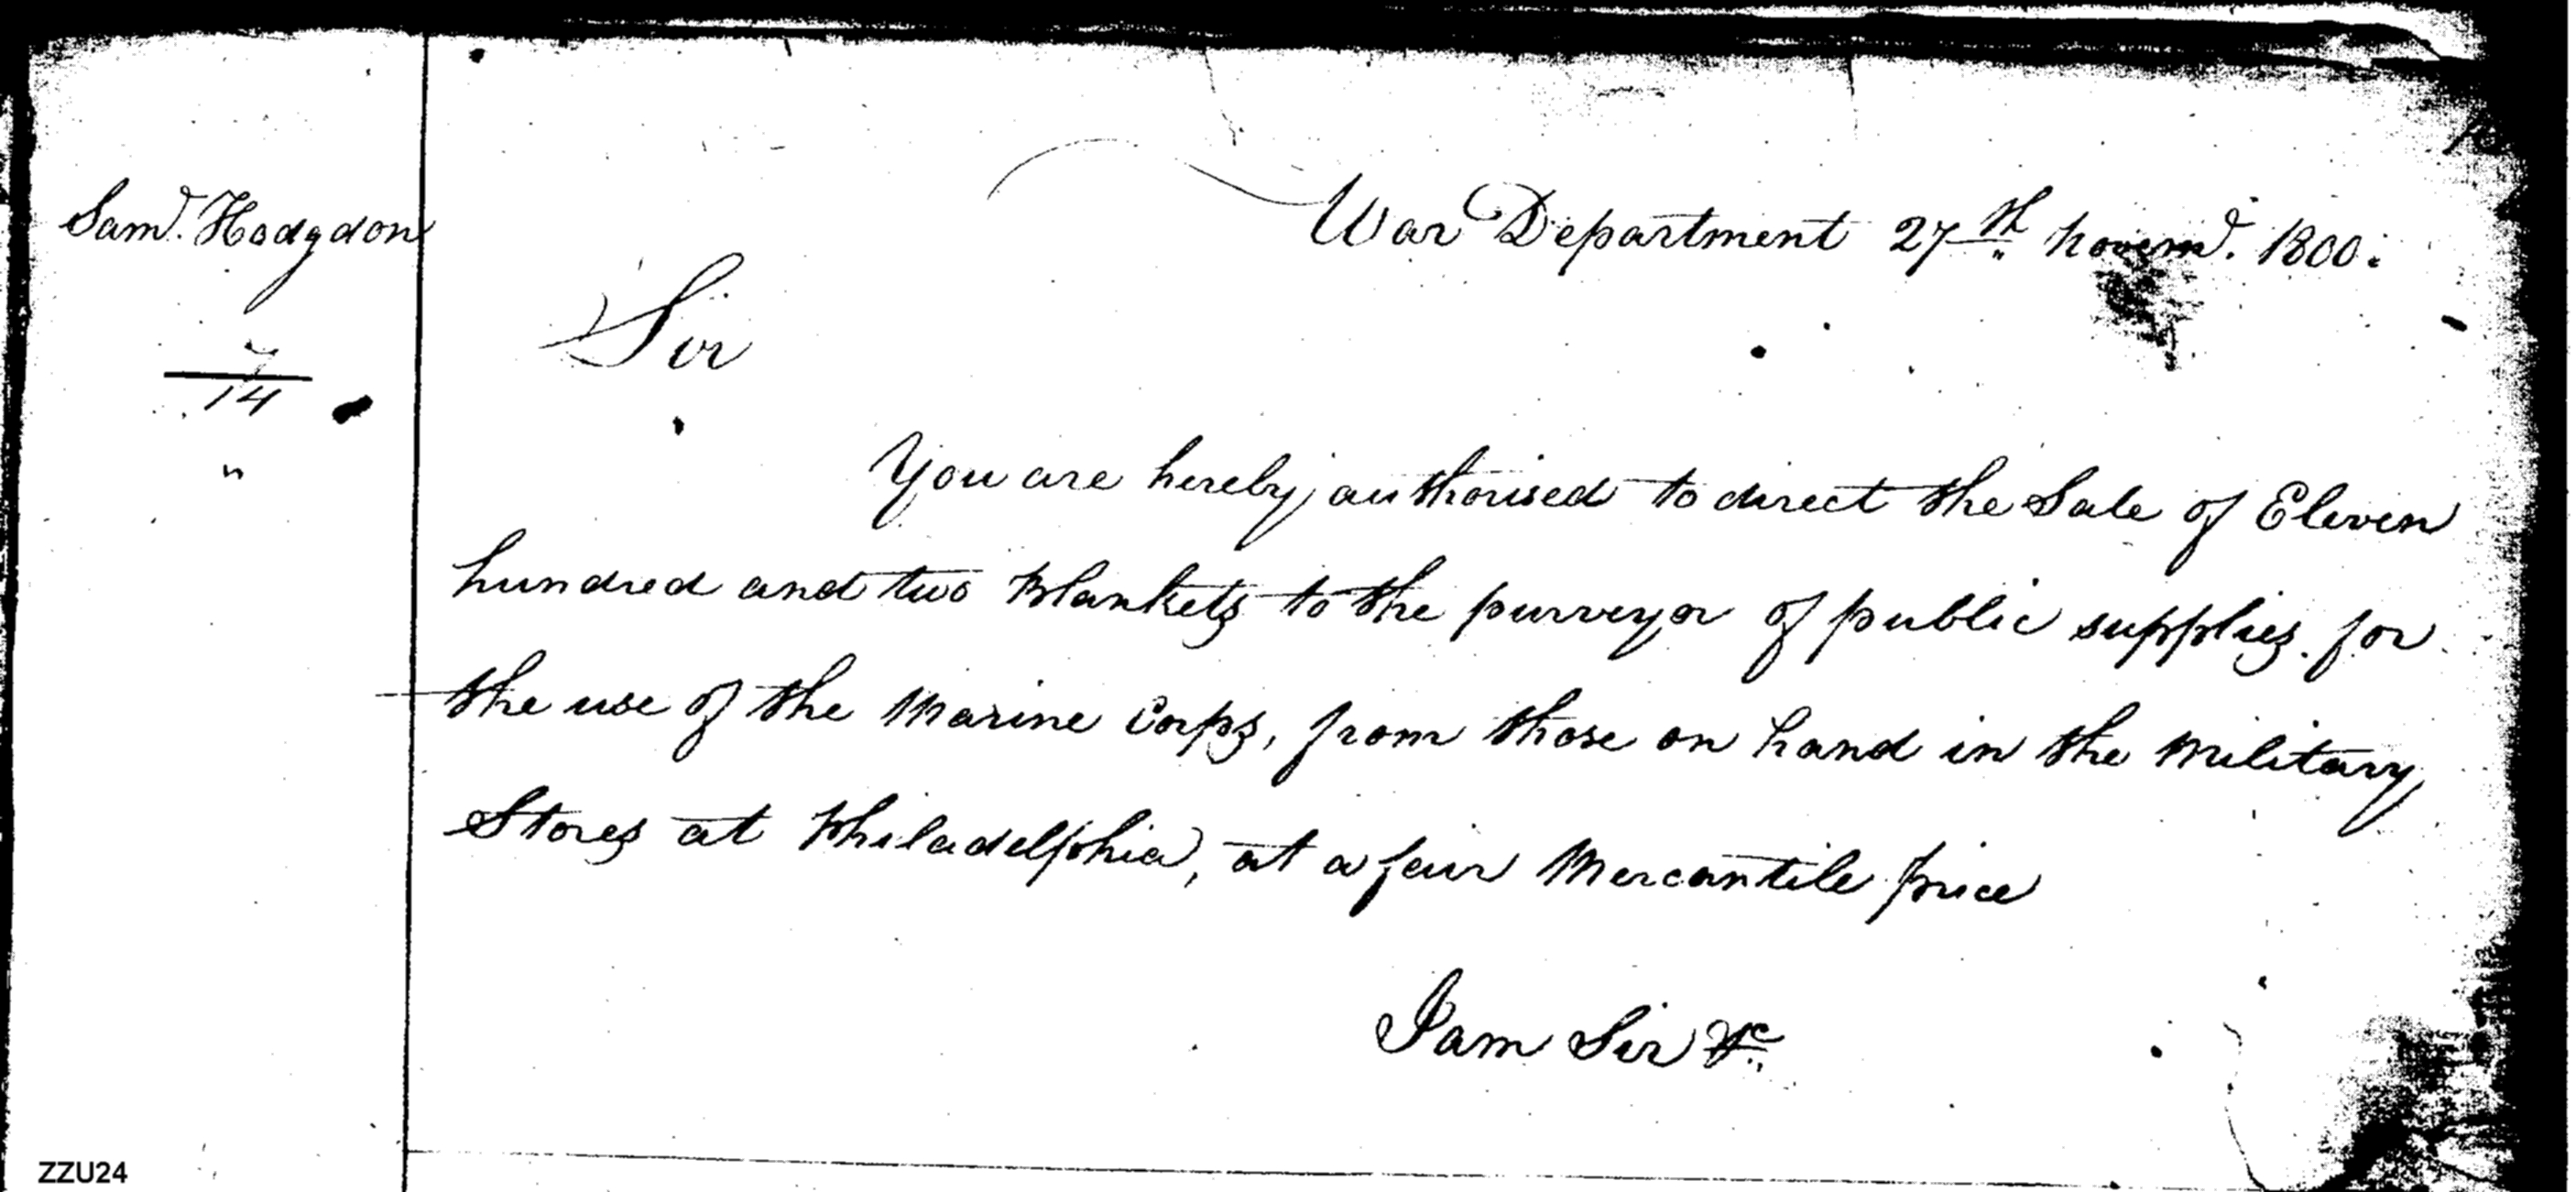 War Department 27th. Novemr. 1800.
Saml. Hodgdon
Sir
7
14
"
You are hereby authorised to direct the Sale of Eleven
hundred and two Blankets to the purveyor of public supplies for
the use of the Marine Corps, from those on hand in the Military
Stores at Philadelphia, at a fair Mercantile price
I am Sir &c.
ZZU24